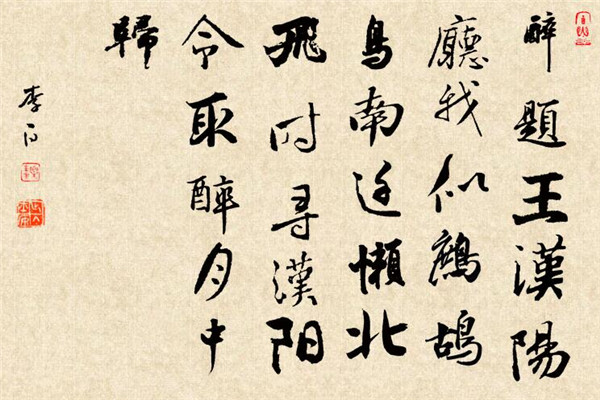 醉題王漢陽
廳我似鷓鴣
鳥南迁懶北
飛时尋漢阳
令取醉月中
歸
李白